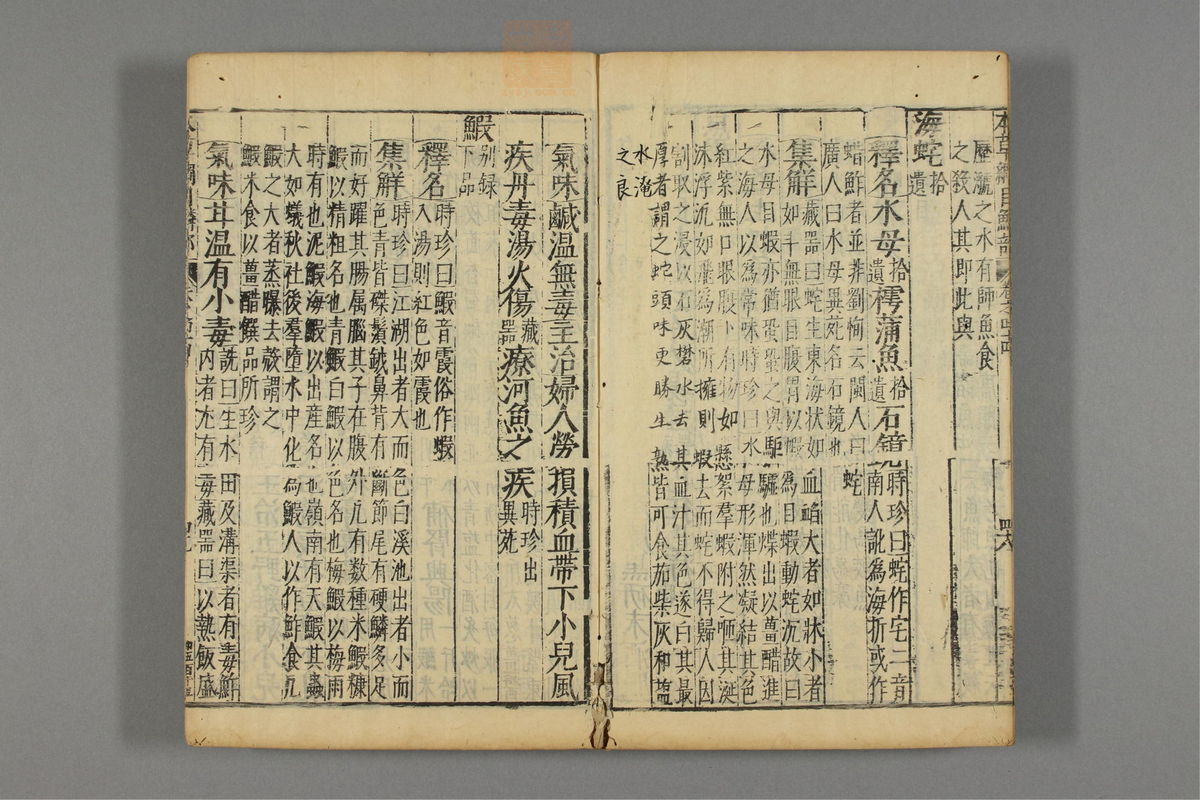 歷瀧之水有師魚食
之殺人其即此與
海蛇拾遺
釋名水母拾遺樗蒲魚拾遺石鏡時珍曰蛇作宅二音
南人訛為海折或作
蜡鮓者並非劉恂云閩人曰蛇
廣人曰水母異苑名石鏡也
集解藏器曰蛇生東海状如血䘓大者如牀小者
如斗無眼目腹胃以蝦為目蝦動蛇沉故曰
水母目蝦亦猶蛩蛩之與駏驉也煠出以薑醋進
之海人以為常味時珍曰水母形渾然凝結其色
紅紫無口眼腹下有物如懸絮羣蝦附之咂其涎
沫浮沉如飛為潮所擁則蝦去而蛇不得歸人因
割取之浸以石灰礬水去其血汁其色遂白其最
厚者謂之蛇頭味更勝生熟皆可食茄柴灰和鹽
水淹之良
氣味鹹温無毒主治婦人勞損積血帶下小兒風
疾丹毒湯火傷藏器療河魚之疾時珍出異苑
鰕别録下品
釋名時珍曰鰕音霞俗作蝦
入湯則紅色如霞也
集解時珍曰江湖出者大而色白溪池出者小而
色青皆磔鬚鉞鼻背有斷節尾有硬鱗多足
而好躍其腸属腦其子在腹外凡有数種米鰕糠
鰕以精粗名也青鰕白鰕以色名也梅鰕以梅雨
時有也泥鰕海鰕以出産名也嶺南有天鰕其蟲
大如蟻秋社後羣墮水中化為鰕人以作鮓食凡
鰕之大者蒸曝去殼謂之
鰕米食以薑醋饌品所珍
氣味甘温有小毒詵曰生水田及溝渠者有毒鮓
内者尤有毒藏器曰以熱飯盛